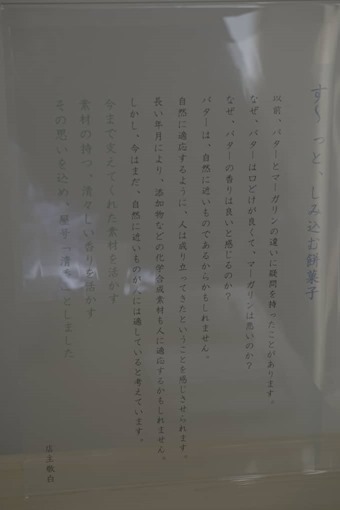 す〜っと、しみ込む餅菓子
以前、バターとマーガリンの違いに疑問を持ったことがあります。
なぜ、バターは口どけが良くて、マーガリンは悪いのか?
なぜ、バターの香りは良いと感じるのか?
バターは、自然に近いものであるからかもしれません。
自然に適応するように、人は成り立ってきたということを感じさせられます。
長い年月により、添加物などの化学合成素材も人に適応するかもしれません。
しかし、今はまだ、自然に近いものが人には適していると考えています。
今まで支えてくれた素材を活かす
素材の持つ、清々しい香りを活かす
その思いを込め、屋号「清々」としました
店主敬白